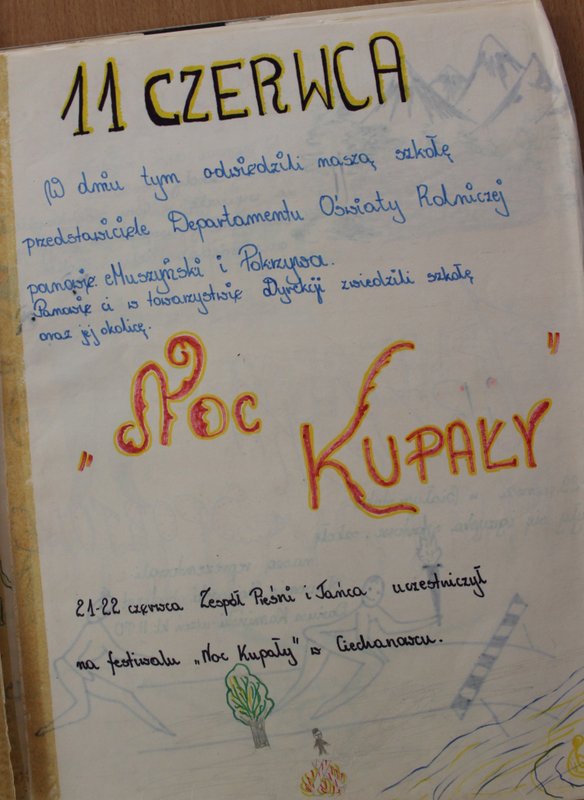 11 CZERWCA
W dniu tym odwiedzili naszą szkołę
przedstawiciele Departamentu Oświaty Rolniczej
panowie Muszyński i Pokrzywa.
Panowie ci w towarzystwie Dyrekcji zwiedzili szkołę
oraz jej okolicę.
„NOC
KUPAŁY"
21-22 czerwca Zespół Pieśni i Tańca uczestniczył
na festiwalu „Noc Kupały" w Ciechanowcu.